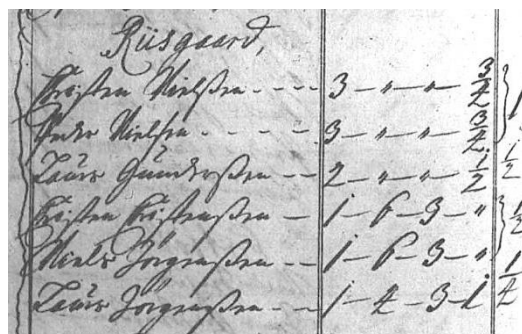 Riisgaard,
Kristen Nielsen - - - - 3 - " - " - 3/4
Peder Nielsen - - - - 3 - " - " - 3/4
Laurs Gundersen - - 2 - " - " - 1/2 1/2
Kristen Kristensen - 1 - 6 - 3 - " 1/2
Niels Jörgensen - - 1 - 6 - 3 - "
Laurs Jörgensen - - 1 - 4 - 3 - 1 1/4